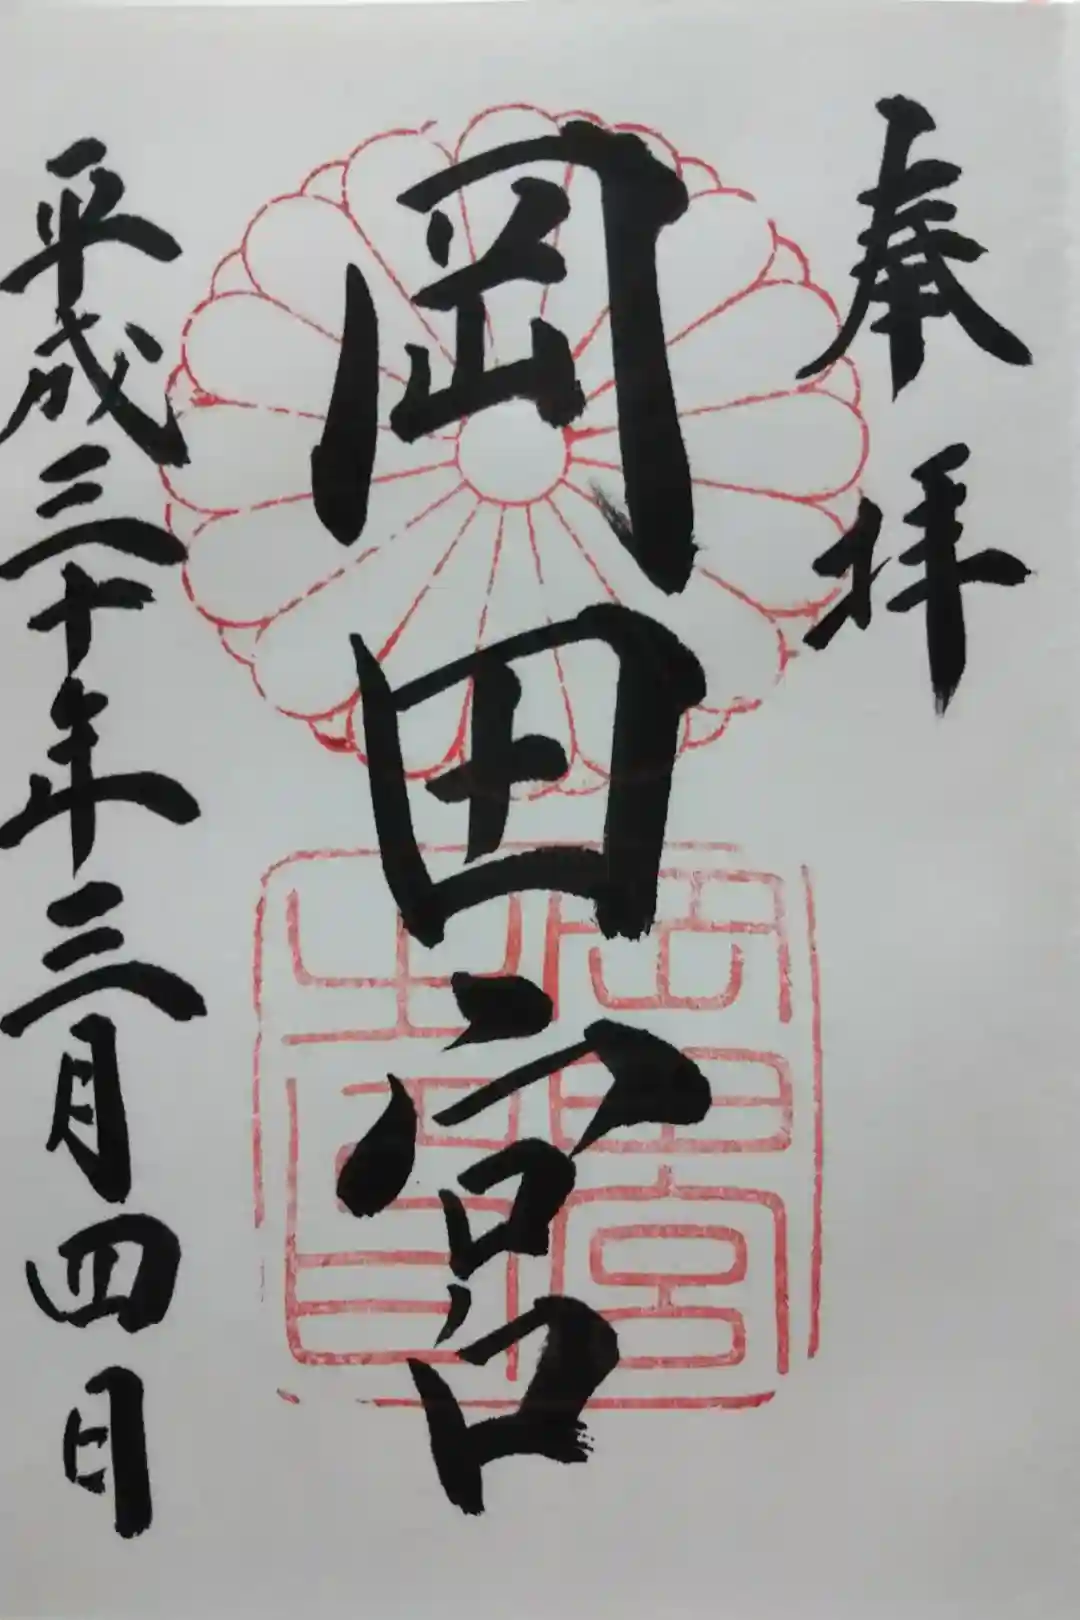 奉拝
岡田宮
平成三十年三月四日
岡田宮
之印